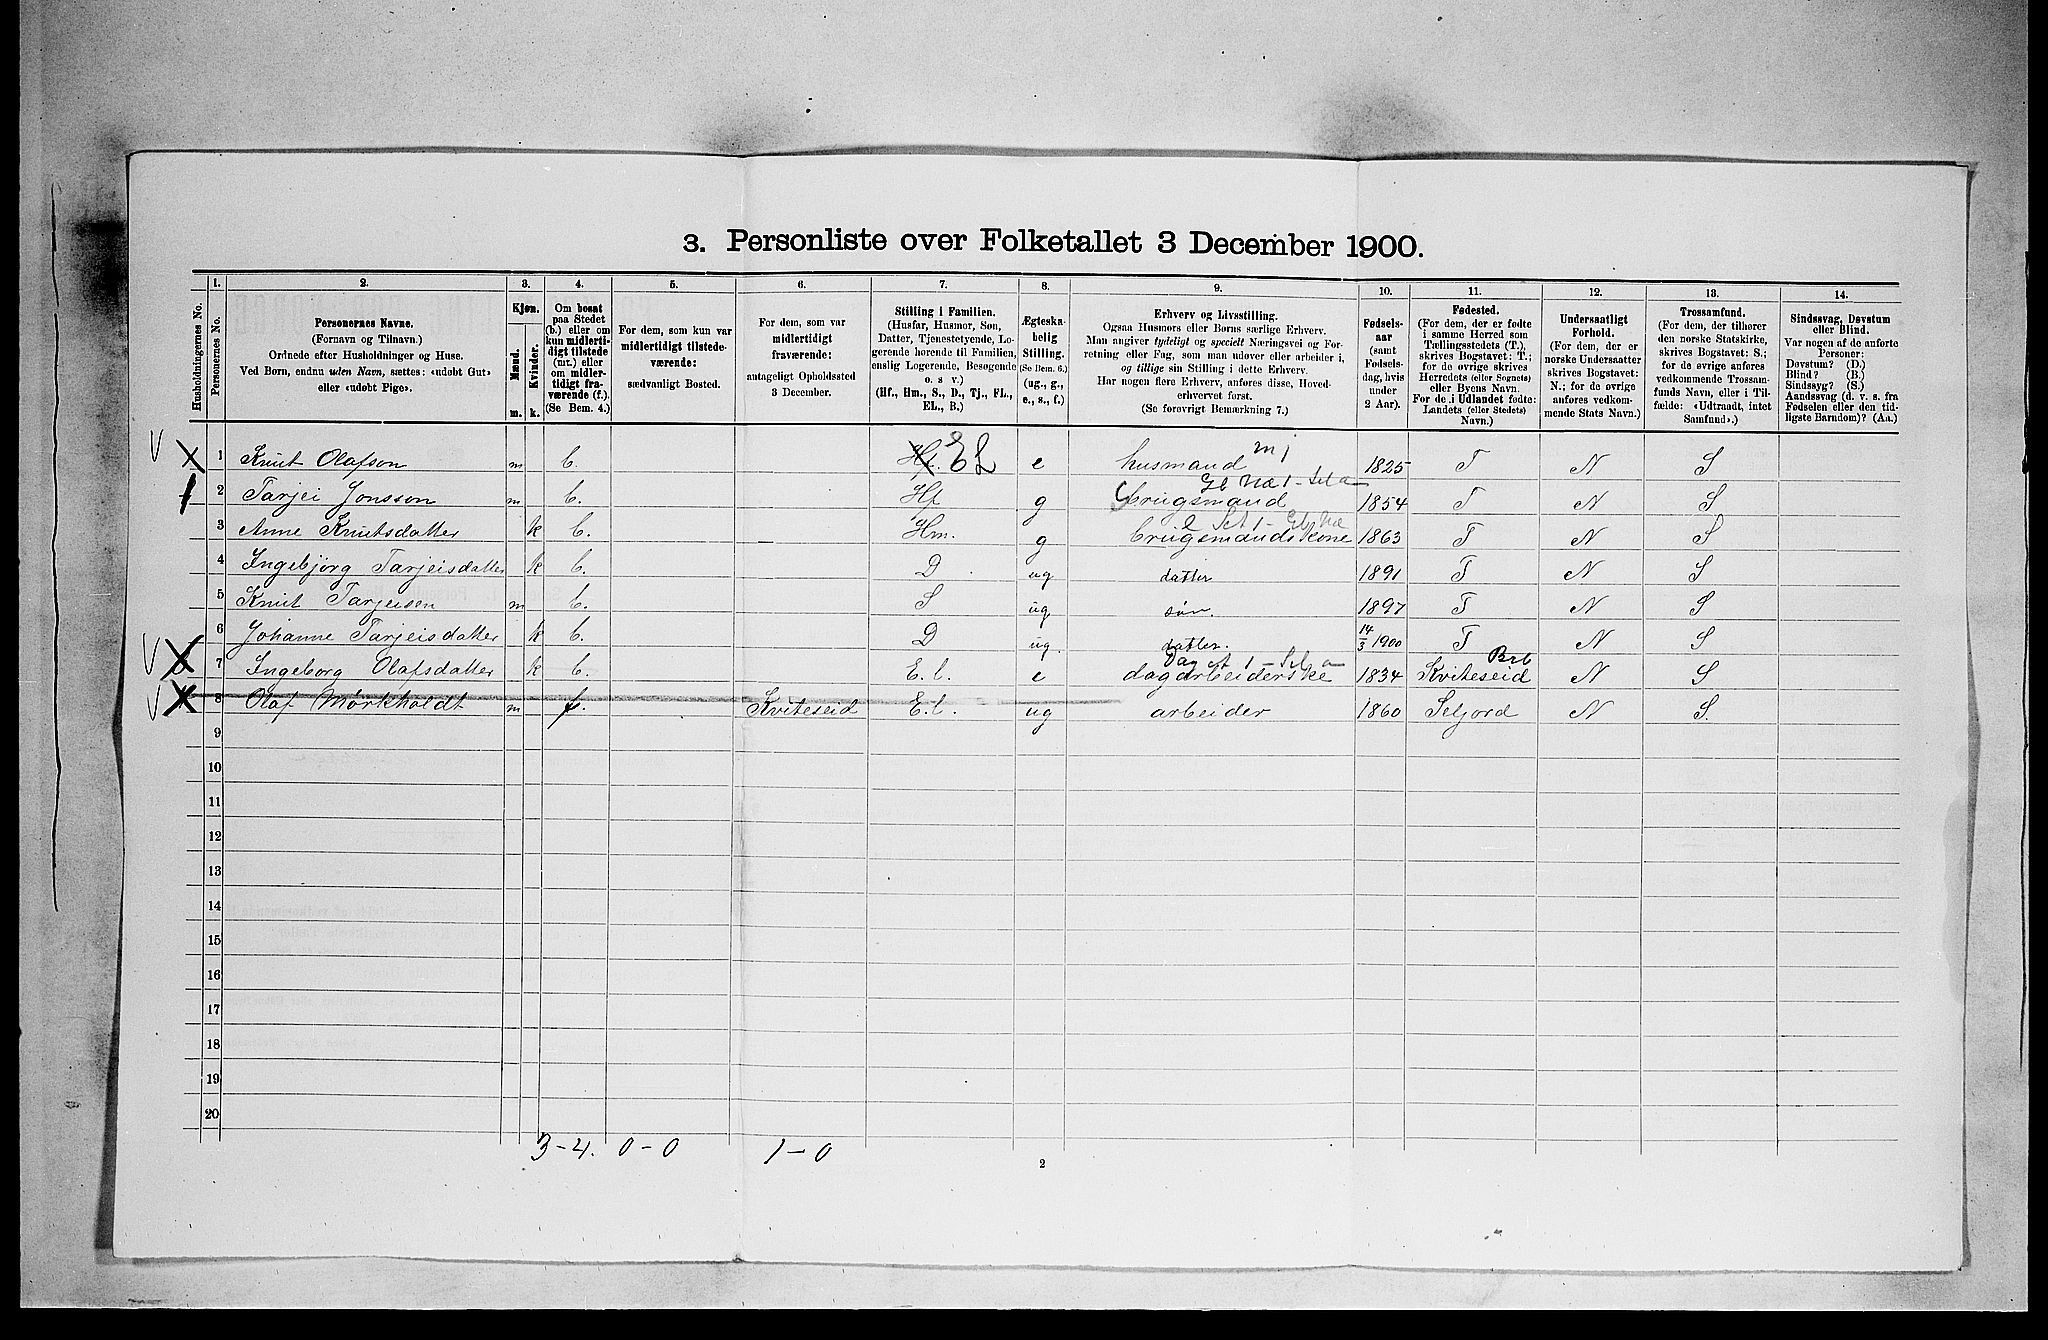 3. Personliste over Folketallet 3 December 1900.
Husholdningernes No.
1.
Personernes No.
2.
Personernes Navne.
(Fornavn og Tilnavn.)
Ordnede efter Husholdninger og Huse.
Ved Børn, endnu uden Navn, sættes: «udøbt Gut»
eller «udøbt Pige».
3.
Kjøn.
Mænd.
m.
Kvinder.
k.
4.
Om bosat
paa Stedet
(b.) eller om
kun midlerti-
digt tilstede
(mt.) eller
om midler-
tidigt fra-
værende (f.).
(Se Bem. 4.)
5.
For dem, som kun var
midlertidigt tilstede-
værende:
sædvanligt Bosted.
6.
For dem, som var
midlertidigt
fraværende:
antageligt Opholdssted
3 December.
7.
Stilling i Familien.
(Husfar, Husmor, Søn,
Datter, Tjenestetyende, Lo-
gerende hørende til Familien,
enslig Logerende, Besøgende
o. s. v.)
(Hf., Hm., S., D., Tj., FL.,
EL., B.)
8.
Ægteska-
belig
Stilling.
(Se Bem. 6.)
(ug., g.,
e., s., f.)
9.
Erhverv og Livsstilling.
Ogsaa Husmors eller Børns særlige Erhverv.
Man angiver tydeligt og specielt Næringsvei og For-
retning eller Fag, som man udøver eller arbeider i,
og tillige sin Stilling i dette Erhverv.
Har nogen flere Erhverv, anføres disse, Hoved-
erhvervet først.
(Se forøvrigt Bemærkning 7.)
10.
Fødsels-
aar
(samt
Fødsels-
dag, hvis
under
2 Aar).
11.
Fødested.
(For dem, der er fødte
i samme Herred som
Tællingsstedets (T.),
skrives Bogstavet: T.;
for de øvrige skrives
Herredets (eller Sognets)
eller Byens Navn.
For de i Udlandet fødte:
Landets (eller Stedets)
Navn.)
12.
Undersaatligt
Forhold.
(For dem, der er
norske Undersaatter
skrives Bogstavet:
N.; for de øvrige
anføres vedkom-
mende Stats Navn.)
13.
Trossamfund.
(For dem, der tilhører
den norske Statskirke,
skrives Bogstavet: S.;
for de øvrige anføres
vedkommende Trossam-
funds Navn, eller i Til-
fælde: «Udtraadt, intet
Samfund».)
14.
Sindssvag, Døvstum
eller Blind.
Var nogen af de anførte
Personer:
Døvstum? (D.)
Blind? (B.)
Sindssyg? (S.)
Aandssvag (d. v. s. fra
Fødselen eller den tid-
ligste Barndom)? (Aa.)
1 Knut Olafson m b. Hf. EL e husmand mj 1825 T N S
2 Tarjei Jonsson m b. Hf g Gbrugsmand 1854 T N S
3 Anne Knutsdatter k b. Hm. g brugsmandskone 1863 T N S
4 Ingebjørg Tarjeisdatter k b. D ug datter 1891 T N S
5 Knut Tarjeisen m b. S ug søn 1897 T N S
6 Johanne Tarjeisdatter k b. D ug. datter. 14/3 1900 T N S
7 Ingeborg Olafsdatter k b. E. l. e dagarbeiderske 1834 Kviteseid N S
8 Olaf Mørkholdt m f. Kviteseid E. l. ug arbeider 1860 Seljord N S.
9
10
11
12
13
14
15
16
17
18
19
20
3-4. 0-0 1-0
2